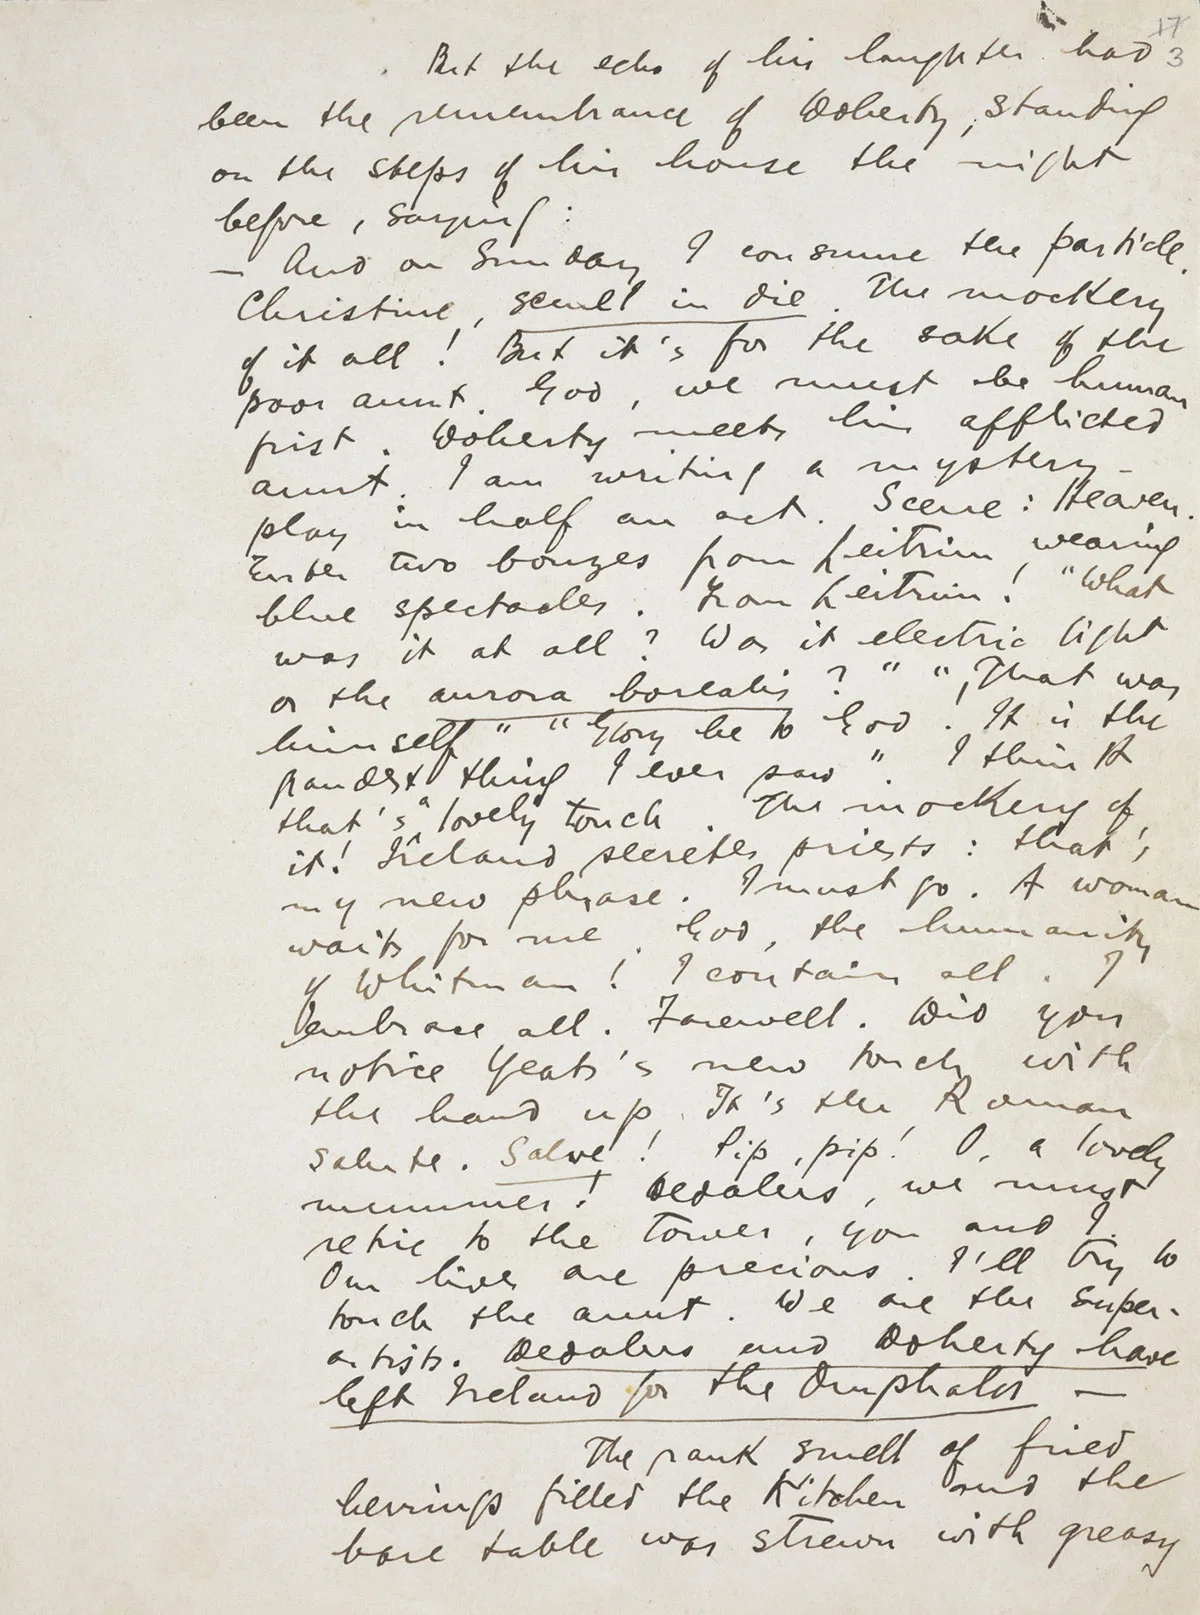 17
3
But the echo of his laughter had
been the remembrance of Doherty, standing
on the steps of his house the night
before, saying:
— And on Sunday I consume the particle.
Christine, semel in die. The mockery
of it all! But it's for the sake of the
poor aunt. God, we must be human
first. Doherty meets his afflicted
aunt. I am writing a mystery-
play in half an act. Scene: Heaven.
Enter two bonzes from Leitrim wearing
blue spectacles. From Leitrim! "What
was it at all? Was it electric light
or the aurora borealis?" "That was
himself" "Glory be to God. It is the
grandest thing I ever saw". I think
that's a lovely touch. The mockery of
it! Ireland secretes priests: that's
my new phrase. I must go. A woman
waits for me. God, the humanity
of Whitman! I contain all. I
embrace all. Farewell. Did you
notice Yeats's new touch with
the hand up. It's the Roman
salute. Salve! Pip, pip! O, a lovely
mummer! Dedalus, we must
retire to the tower, you and I.
Our lives are precious. I'll try to
touch the aunt. We are the super-
artists. Dedalus and Doherty have
left Ireland for the Omphalos —
The rank smell of fried
herrings filled the kitchen and the
bare table was strewn with greasy